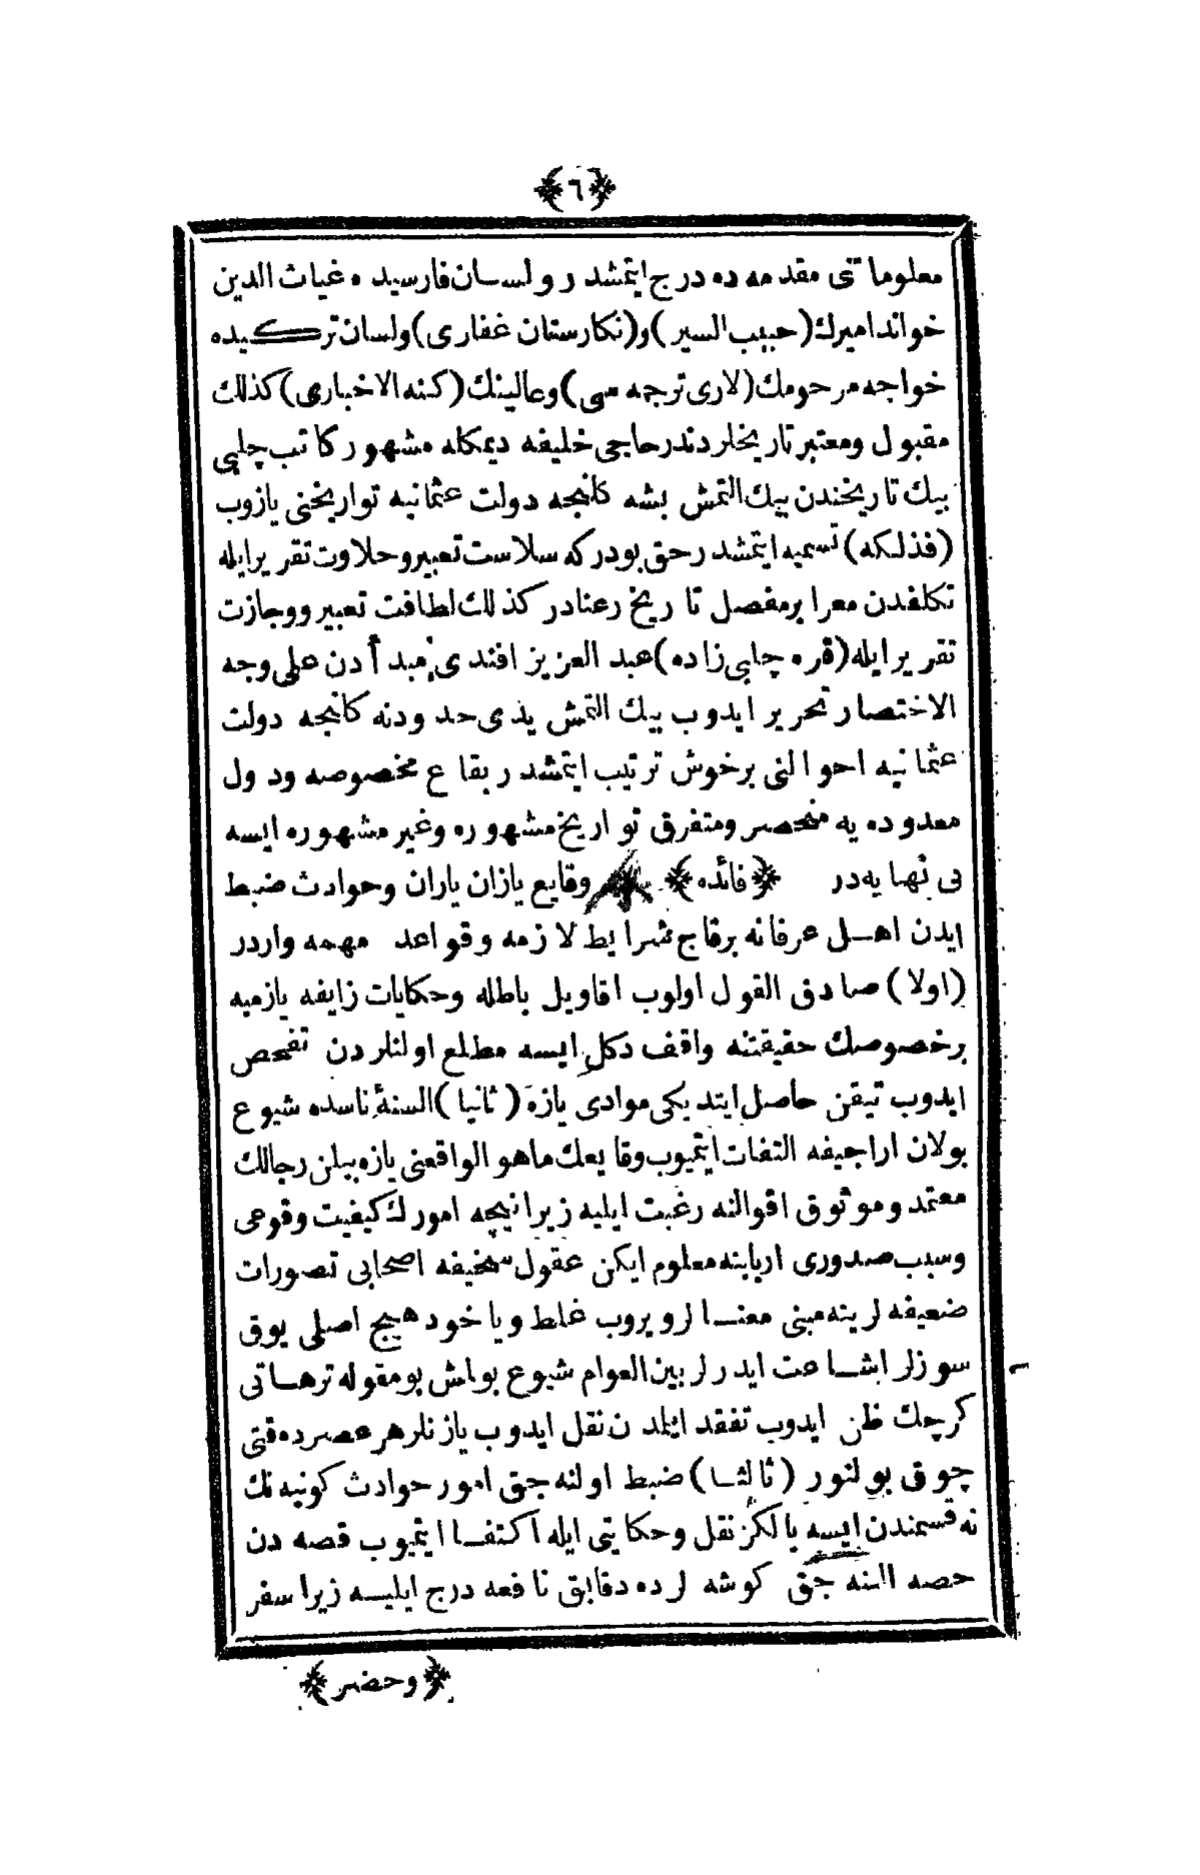 ﴿٦﴾
معلوماتنى مقدمه ده درج ايتمشدر ولسان فارسيده غياث الدين
خواندامیرك (حبيب السير) و(نكارستان غفارى) ولسان تركيده
خواجه مرحومك (لارى ترجمه سى) وعالينك (كنه الاخبارى) كذلك
مقبول ومعتبر تاريخلردندر حاجى خليفه ديمكله مشهور كاتب چلبى
بيك تاريخندن بيك التمش بشه كلنجه دولت عثمانيه تواريخنى يازوب
(فذلكه) تسميه ايتمشدر حق بودركه سلاست تعبير وحلاوت تقرير ايله
تكلفدن معرا بر مفصل تاريخ رعنادر كذلك لطافت تعبير ووجازت
تقرير ايله (قره چلبى زاده) عبد العزيز افندى مبدأدن على وجه
الاختصار تحرير ايدوب بيك التمش يدى حدودنه كلنجه دولت
عثمانيه احوالنى برخوش ترتيب ايتمشدر بقاع مخصوصه ودول
معدوده يه منحصر ومتفرق تواريخ مشهوره وغير مشهوره ايسه
بى نهايه در ﴿فائده﴾ وقايع يازان ياران وحوادث ضبط
ايدن اهل عرفانه برقاج شرايط لازمه وقواعد مهمه واردر
(اولا) صادق القول اولوب اقاويل باطله وحكايات زايفه يازميه
برخصوصك حقيقتنه واقف دكل ايسه مطلع اولنلردن تفحص
ايدوب تيقن حاصل ايتديكى موادى يازه (ثانيا) السنۀ ناسده شيوع
بولان اراجيفه التفات ايتميوب وقايعك ماهو الواقعنى يازه بيلن رجالك
معتمد وموثوق اقوالنه رغبت ايليه زيرا نيچه امورك كيفيت وقوعى
وسبب صدورى اربابنه معلوم ايكن عقول سخيفه اصحابى تصورات
ضعيفه لرينه مبنى معنالر ويروب غلط وياخود هيچ اصلى يوق
سوزلر اشاعت ايدرلر بين العوام شيوع بولمش بومقوله ترهاتى
كرچك ظن ايدوب تفقد ايلمدن نقل ايدوب يازنلر هر عصرده قتى
چوق بولنور (ثالثا) ضبط اولنه جق امور حوادث كونيه نك
نه قسمندن ايسه يالكز نقل وحكايتى ايله اكتفا ايتميوب قصه دن
حصه النه جق كوشه لرده دقايق نافعه درج ايليه زيرا سفر
﴿وحضر﴾